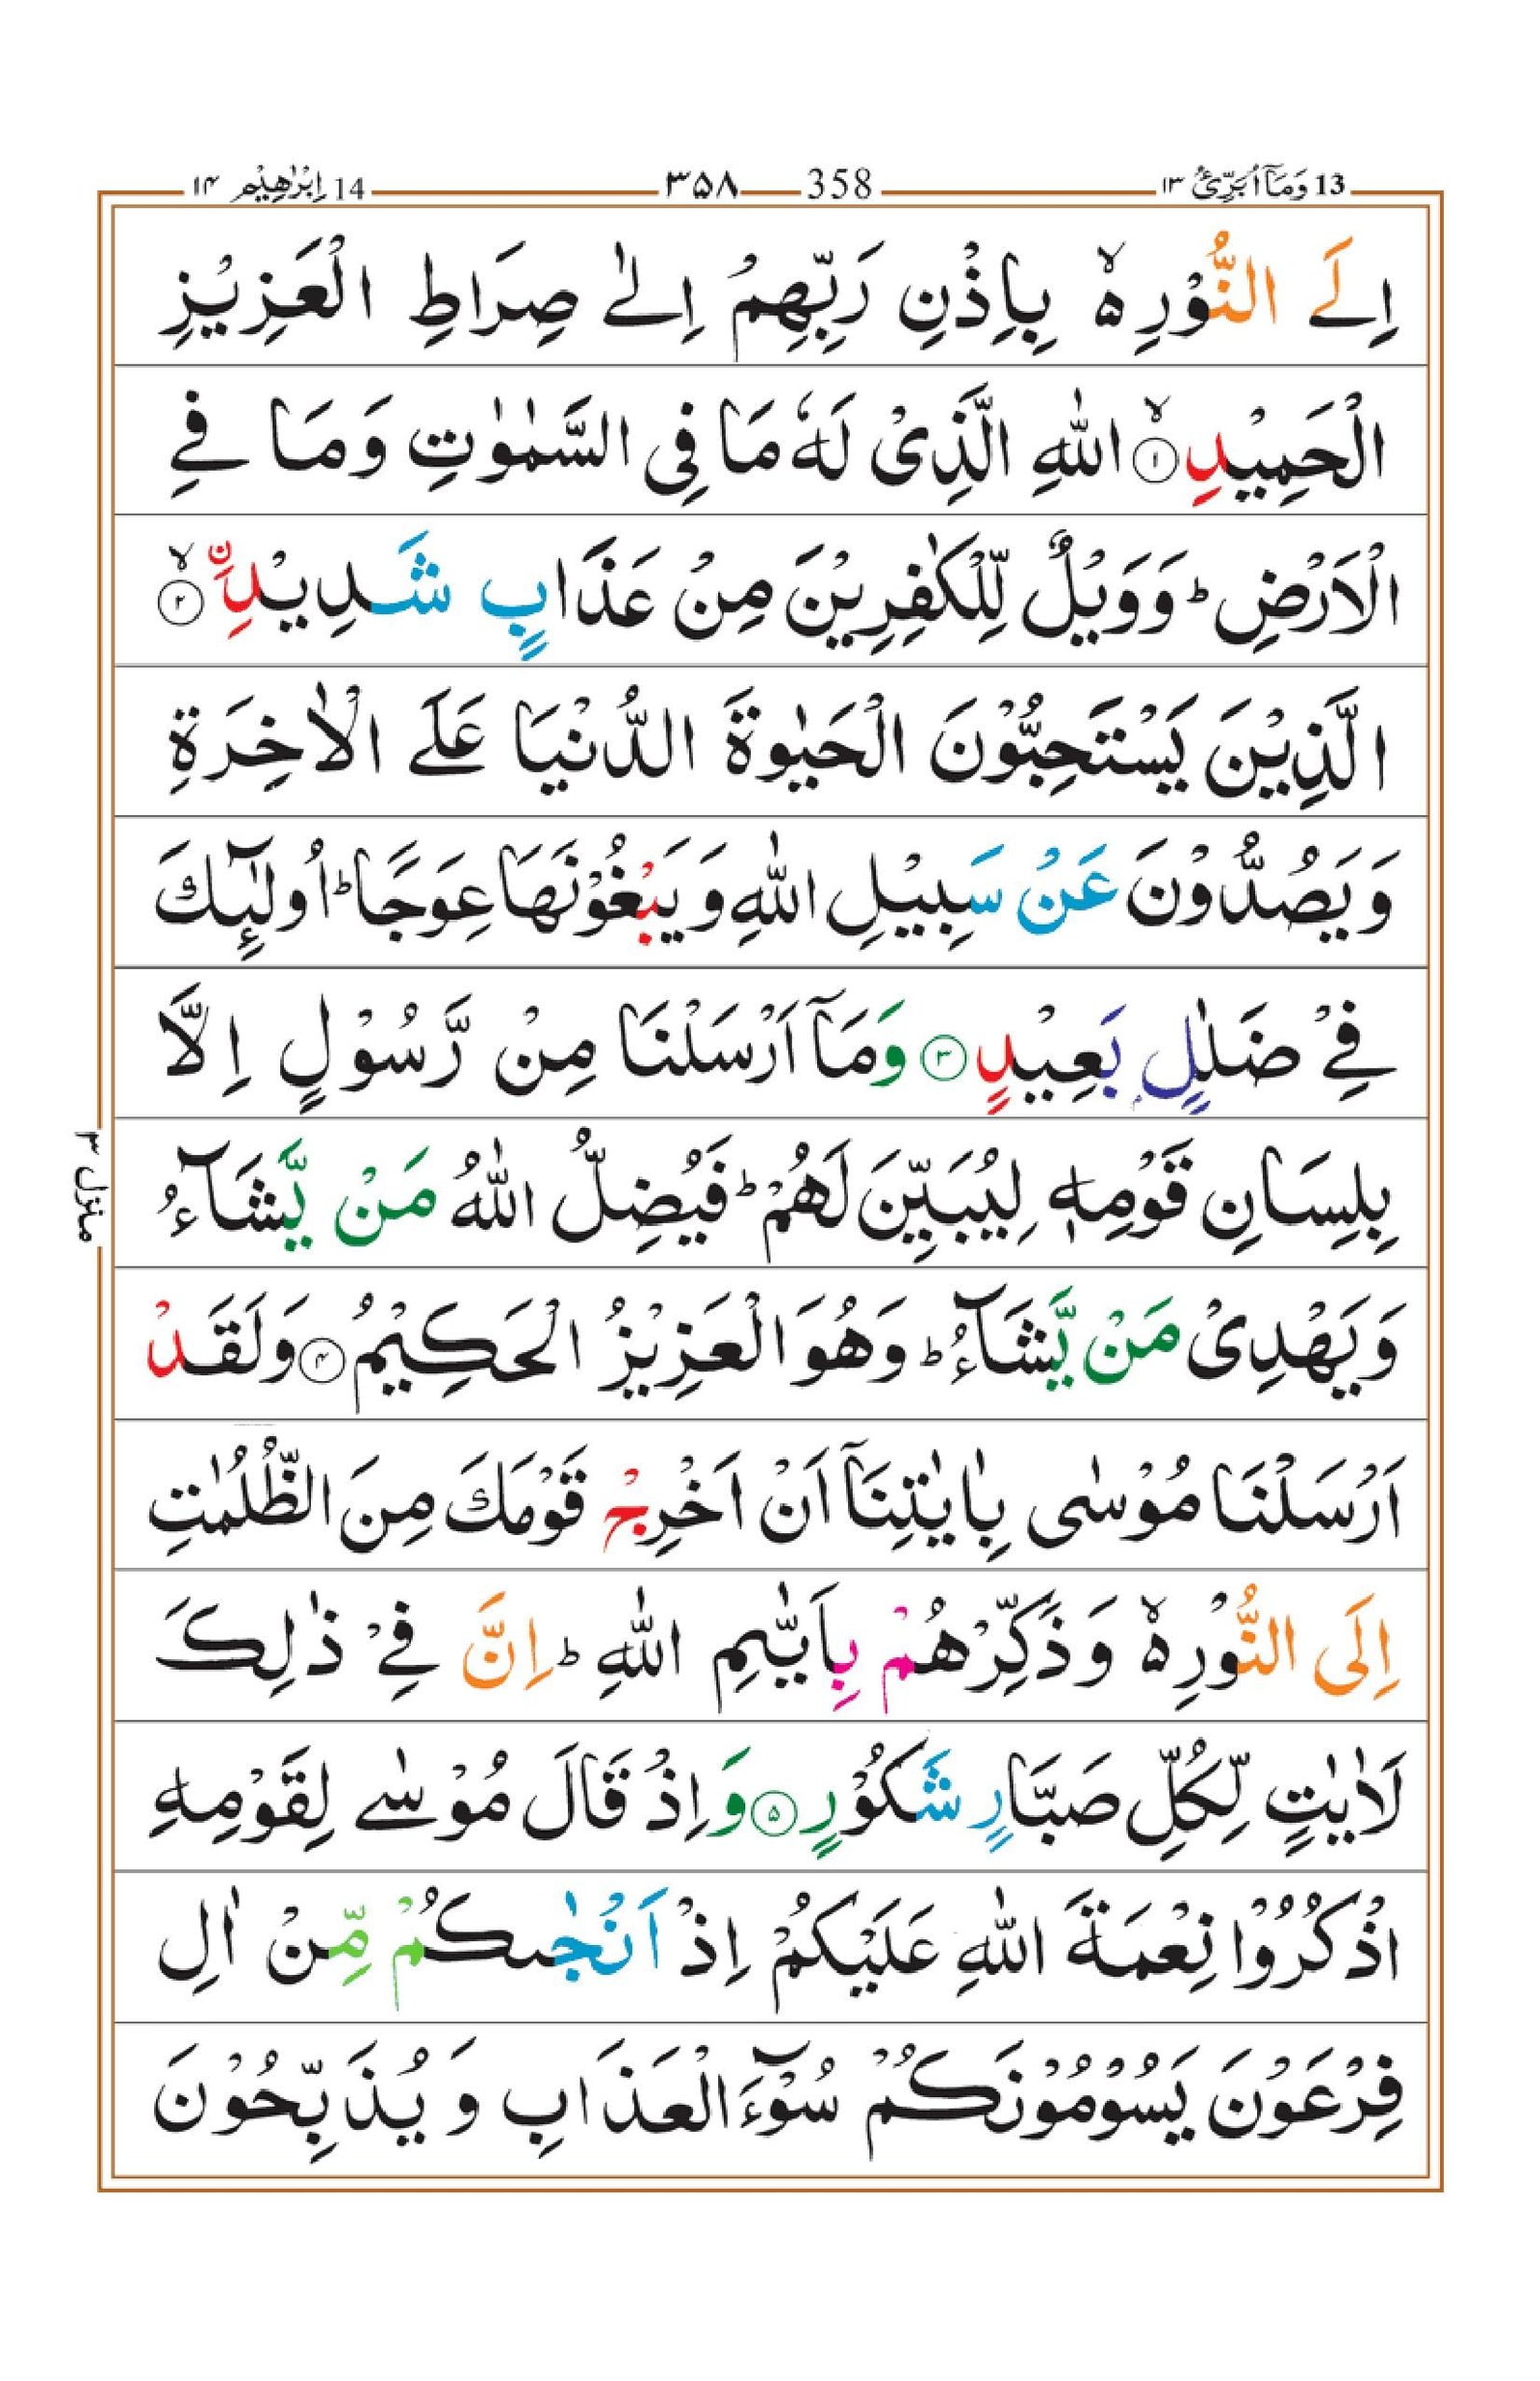 13 وَمَآ اُبَرِّئُ ١٣ 358 ٣٥٨ 14 اِبْرٰهِيْم ١٤
اِلَے النُّوْرِ ۵ۙ بِاِذْنِ رَبِّهِمْ اِلٰے صِرَاطِ الْعَزِيْزِ
الْحَمِيْدِ ۙ﴿۱﴾ اللّٰهِ الَّذِیْ لَهٗ مَا فِی السَّمٰوٰتِ وَمَا فِے
الْاَرْضِ ؕ وَوَيْلٌ لِّلْكٰفِرِيْنَ مِنْ عَذَابٍ شَدِيْدِ ۣۙ﴿۲﴾
الَّذِيْنَ يَسْتَحِبُّوْنَ الْحَيٰوةَ الدُّنْيَا عَلَے الْاٰخِرَةِ
وَيَصُدُّوْنَ عَنْ سَبِيْلِ اللّٰهِ وَيَبْغُوْنَهَا عِوَجًا ؕ اُولٰٓئِكَ
فِےْ ضَلٰلٍۭ بَعِيْدٍ ﴿۳﴾ وَمَآ اَرْسَلْنَا مِنْ رَّسُوْلٍ اِلَّا
بِلِسَانِ قَوْمِهٖ لِيُبَيِّنَ لَهُمْ ؕ فَيُضِلُّ اللّٰهُ مَنْ يَّشَآءُ
وَيَهْدِیْ مَنْ يَّشَآءُ ؕ وَهُوَ الْعَزِيْزُ الْحَكِيْمُ ﴿۴﴾ وَلَقَدْ
اَرْسَلْنَا مُوْسٰی بِاٰيٰتِنَآ اَنْ اَخْرِجْ قَوْمَكَ مِنَ الظُّلُمٰتِ
اِلَی النُّوْرِ ۵ۙ وَذَكِّرْهُمْ بِاَيّٰىمِ اللّٰهِ ؕ اِنَّ فِےْ ذٰلِكَ
لَاٰيٰتٍ لِّكُلِّ صَبَّارٍ شَكُوْرٍ ﴿۵﴾ وَاِذْ قَالَ مُوْسٰے لِقَوْمِهِ
اذْكُرُوْا نِعْمَةَ اللّٰهِ عَلَيْكُمْ اِذْ اَنْجٰىكُمْ مِّنْ اٰلِ
فِرْعَوْنَ يَسُوْمُوْنَكُمْ سُوْٓءَ الْعَذَابِ وَيُذَبِّحُوْنَ
منزل ۳